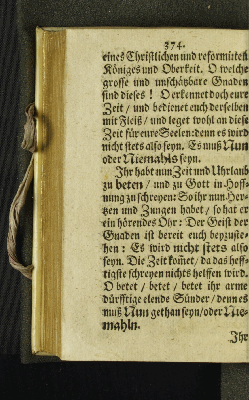 374.
eines Christlichen und reformirten
Königes und Oberkeit. O welche
grosse und unschätzbare Gnaden
sind dieses! O erkennet doch eure
Zeit / und bedienet euch derselben
mit Fleiß / und leget wohl an diese
Zeit für eure Seelen: denn es wird
nicht stets also seyn. Es muß Nun
oder Niemahls seyn.
Ihr habt nun Zeit und Uhrlaub
zu beten / und zu Gott in Hoff-
nung zu schreyen: So ihr nun Her-
tzen und Zungen habet / so hat er
ein hörendes Ohr: Der Geist der
Gnaden ist bereit euch beyzuste-
hen: Es wird nicht stets also
seyn. Die Zeit komet / da das heff-
tigste schreyen nichts helffen wird.
O betet / betet / betet ihr arme
dürfftige elende Sünder / denn es
muß Nun gethan seyn / oder Nie-
mahln.
Ihr